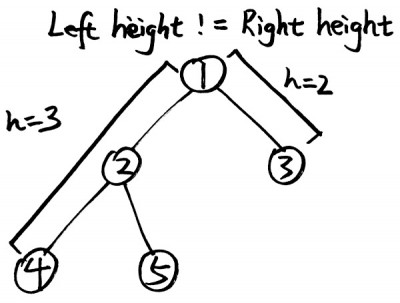 Left height != Right height
1
h=2
h=3
2
3
4
5